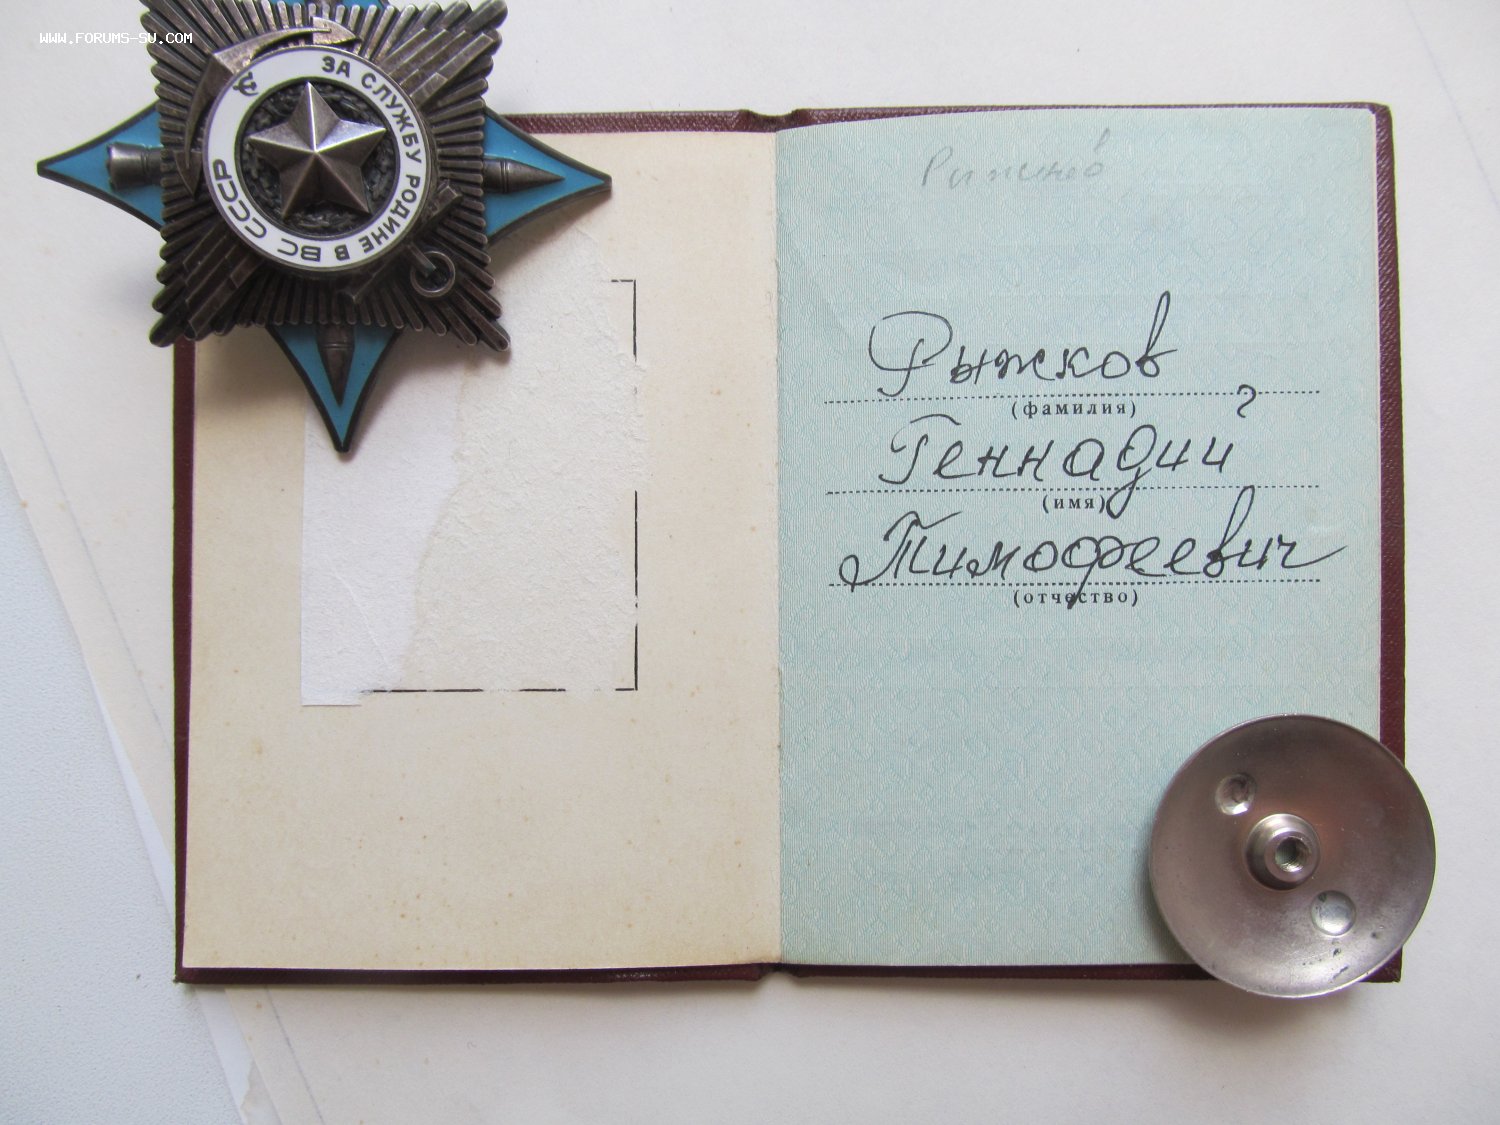 WWW.FORUMS-SU.COM
ЗА СЛУЖБУ РОДИНЕ В ВС СССР
Рыжков
(фамилия)
Геннадий
(имя)
Тимофеевич
(отчество)